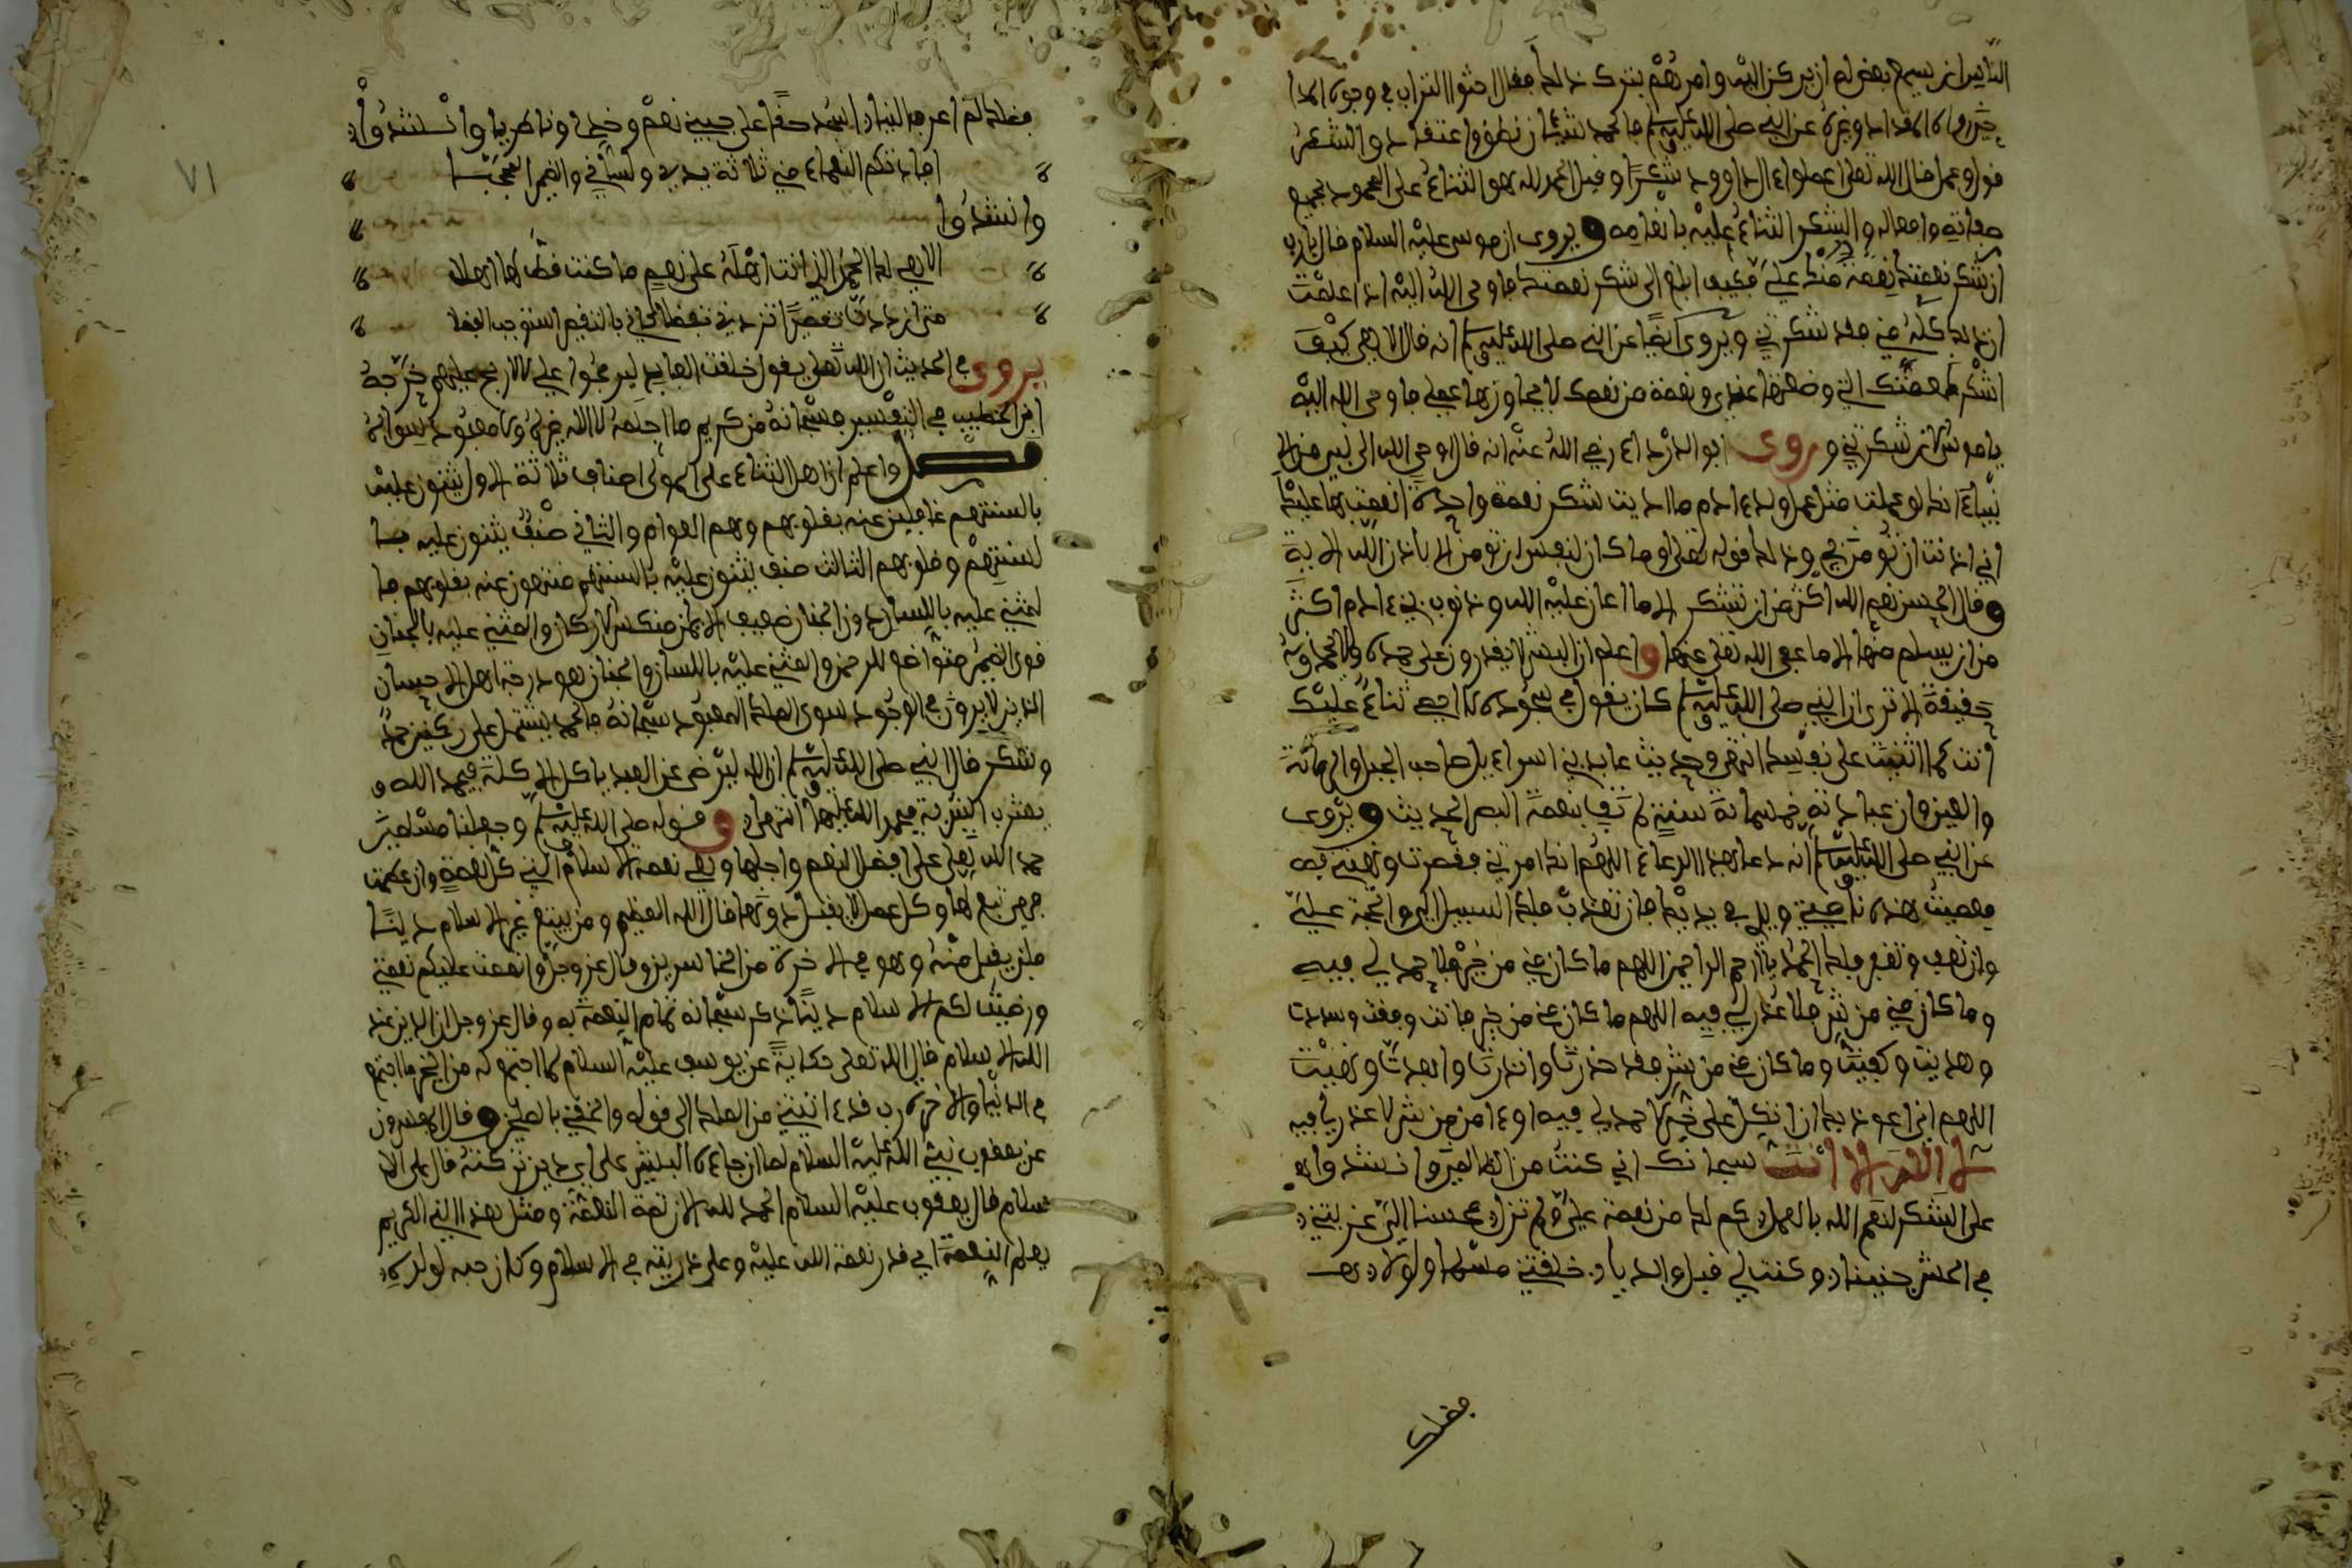 الناس ان يسمع بعضهم ان يركن اليه وامرهم بترك ذلك فقال احثوا التراب في وجوه المدا
حين رواه المقداد وغيره عن النبي صلى الله عليه وسلم فالحمد لله شيئان نطق واعتقاد والشكر
قول وعمل قال الله تعلى اعملوا ءال داوود شكرا وقيل الحمد لله هو الثناء على المحمود بجميع
صفاته وافعاله والشكر الثناء عليه بانعامه ويروى ان موسى عليه السلام قال يارب
ان شكر نعمتك نعمة منك علي فكيف ابلغ الى شكر نعمتك فاوحى الله اليه اذا علمت
ان ذلك كله مني فقد شكرتني ويروى ايضا عن النبي صلى الله عليه وسلم انه قال الاهي كيف
اشكر نعمتك التي وضعتها عندي ونعمة من نعمك لا يجاوزها عملي فاوحى الله اليه
يا موسى الان شكرتني وروى ابو الدرداء رضي الله عنه انه قال اوحى الله الى نبي من الا
نبياء انك لو عملت مثل عمل ولد ءادم ما اديت شكر نعمة واحدة انعمت بها عليك
اني اذنت ان تومن بي وذلك قوله تعلى وما كان لنفس ان تومن الا باذن الله الاية
وقال الحسن نعم الله اكثر من ان تشكر الا ما اعان عليه الله وذنوب بني ءادم اكثر
من ان يسلم منها الا ما عفى الله تعلى عنها واعلم ان البشر لا يقدرون على حمده ولا يحمدونه
حقيقة الا ترى ان النبي صلى الله عليه وسلم كان يقول في سجوده لا احصي ثناء عليك
انت كما اثنيت على نفسك انتهى وحديث عابد بني اسراءيل صاحب الجبل والرمانة
والعين وان عبادته خمسمائة سنة لم تف بنعمة البصر الحديث ويروى
عن النبي صلى الله عليه وسلم انه دعا بهذا الدعاء اللهم انك امرتني فقصرت ونهيتني
فعصيت هذه ناصيتي ويدي في يديك فان تعذب فلك السبيل والحجة علي
وان تعف وتغفر فلك الحمد يا ارحم الراحمين اللهم ما كان مني من خير فلا حمد لي فيه
وما كان مني من شر فلا عذر لي فيه اللهم ما كان مني من خير فانت وفقت وسددت
وهديت وكفيت وما كان مني من شر فقد حذرت وانذرت وابعدت ونهيت
اللهم اني اعوذ بك ان اتكل على خير لا حمد لي فيه او ءامن من شر لا عذر لي فيه
لا اله الا انت سبحانك اني كنت من الظالمين وانشدوا
على الشكر لنعم الله بالعمل كم لك من نعمة علي ولم تزل محسنا الي عز بتني
في الحشى جنينا وكنت لي قبل والديا خلقتني مسلما ولولا
فضلك
فضلك لم اعرف النبيا اسجد حقا على جبيني نعم وخدي وناظريا وانشدوا
افادتكم النعماء مني ثلاثة يدي ولساني والضمير المحجبا
وانشدوا
الاهي لك الحمد الذي انت اهله على نعم ما كنت قط لها اهلا
متى ازددت تقصيرا تزدني تفضلا كاني بالتقصير استوجب الفضلا
يروى في الحديث ان الله تعلى يقول خلقت العابد ليربحوا علي لا لاربح عليهم خرجه
ابن الخطيب في التفسير فسبحانه من كريم ما احلمه لا اله غيره ولا معبود سواه
فصل واعلم ان اهل الثناء على المولى اصناف ثلاثة الاول يثنون عليه
بالسنتهم غافلين عنه بقلوبهم وهم العوام والثاني صنف يثنون عليه با
لسنتهم وقلوبهم الثالث صنف يثنون عليه بالسنتهم منتهون عنه بقلوبهم فا
لمثني عليه باللسان دون الجنان ضعيف الايمان منكسر الاركان والمثني عليه بالجنان
قوي الضمير متواضع للرحمن والمثني عليه باللسان والجنان هو درجة اهل الاحسان
الذين لا يرون في الوجود سوى الملك المعبود سبحانه فالحمد يشتمل على ركنين حمد
وشكر قال النبي صلى الله عليه وسلم ان الله ليرضى عن العبد ياكل الاكلة فيحمد الله و
يشرب الشربة فيحمد الله عليها انتهى وقوله صلى الله عليه وسلم وجعلنا مسلمين
حمد الله تعلى على افضل النعم واجلها وهي نعمة الاسلام التي كل نعمة وان عظمت
فهي تبع لها وكل عمل لا يقبل دونها قال الله العظيم ومن يبتغ غير الاسلام دينا
فلن يقبل منه وهو في الاخرة من الخاسرين وقال عز وجل واتممت عليكم نعمتي
ورضيت لكم الاسلام دينا ذكر سبحانه تمام النعمة به وقال عز وجل ان الدين عند
الله الاسلام قال الله تعلى حكاية عن يوسف عليه السلام لما اجتمع له من الخير ما اجتمع
في الدنيا والاخرة رب قد ءاتيتني من الملك الى قوله والحقني بالصالحين وقال المفسرون
عن يعقوب نبي الله عليه السلام لما ان جاءه البشير على اي دين تركته قال على الا
سلام قال يعقوب عليه السلام الحمد لله الان تمت النعمة ومثل هذا النبي الكريم
يعلم النعمة اي قدر نعمة الله عليه وعلى ذريته في الاسلام وكان حبه لولده
٧١